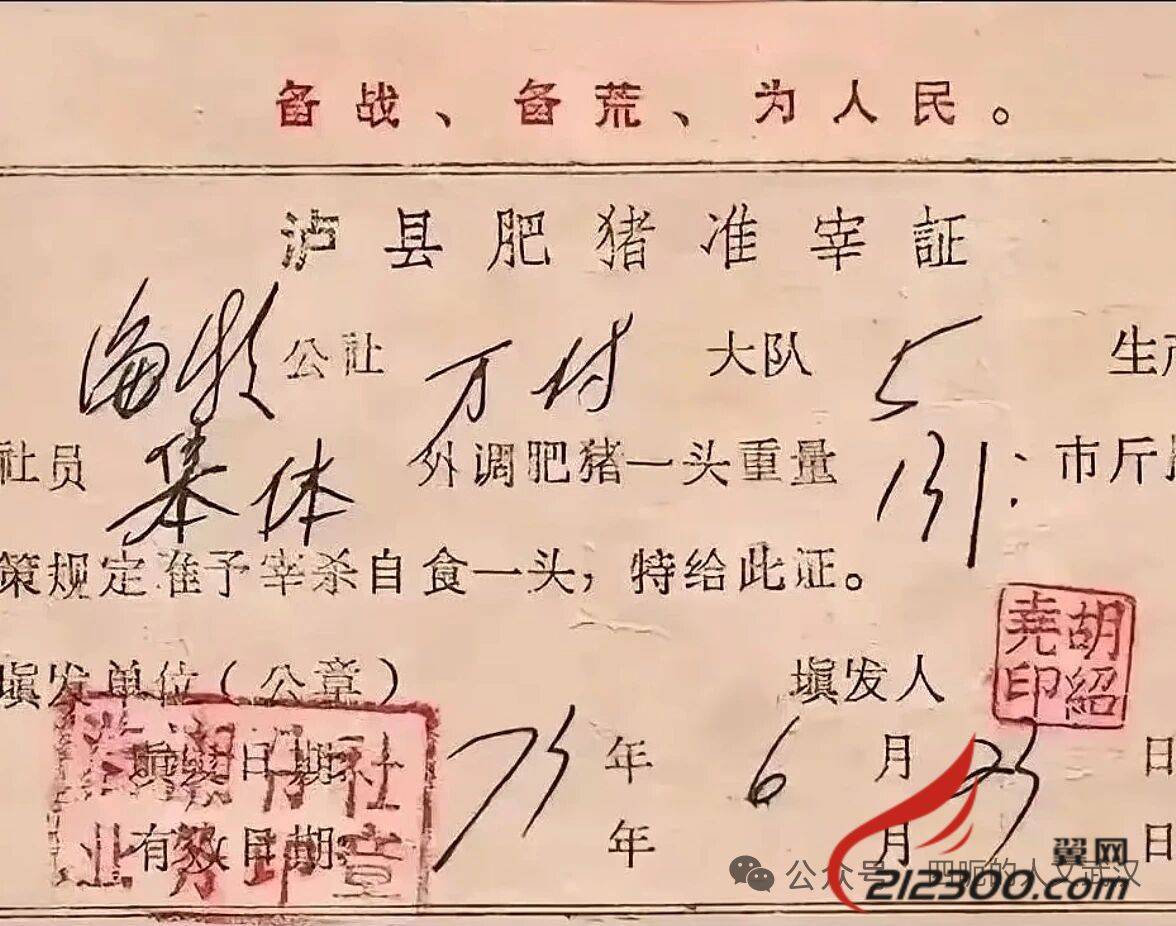 备战、备荒、为人民。
泸县肥猪准宰証
海潮公社 万付 大队 5 生产
社员 集体 外调肥猪一头重量 131: 市斤
策规定准予宰杀自食一头，特给此证。
填发单位（公章） 填发人
胡紹
堯印
填发日期 75年 6月 23日
有效日期 年 月 日
社
业 章
公众号 四呃的人文武汉
翼网
212300.com